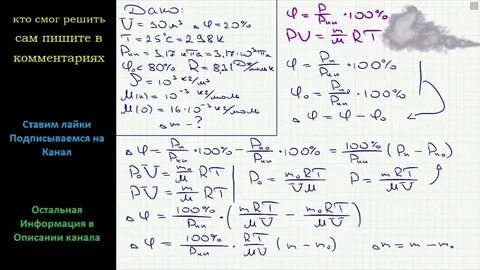 кто смог решить
сам пишите в
комментариях
Ставим лайки
Подписываемся на
Канал
Остальная
Информация в
Описании канала
Дано:
V = 30 м³ Δφ = 20%
T = 25°C = 298К
Pнп = 3,17 кПа = 3,17·10³Па
φ₀ < 80% R = 8,31
ρ = 10³ кг/м³
M(H) = 10⁻³ кг/моль
M(O) = 16·10⁻³ кг/моль
Δm - ?
φ = P/Pнп · 100%
PV = m/M RT
φ = Pп/Pнп · 100%
φ₀ = Pпо/Pнп · 100%
Δφ = φ - φ₀
Δφ = Pп/Pнп · 100% - Pпо/Pнп · 100% = 100%/Pнп (Pп - Pпо)
P₀V = m₀/M RT P₀ = m₀RT/MV P = mRT/MV
PV = m/M RT
Δφ = 100%/Pнп · (mRT/MV - m₀RT/MV)
Δφ = 100%/Pнп · RT/MV (m - m₀) Δm = m - m₀